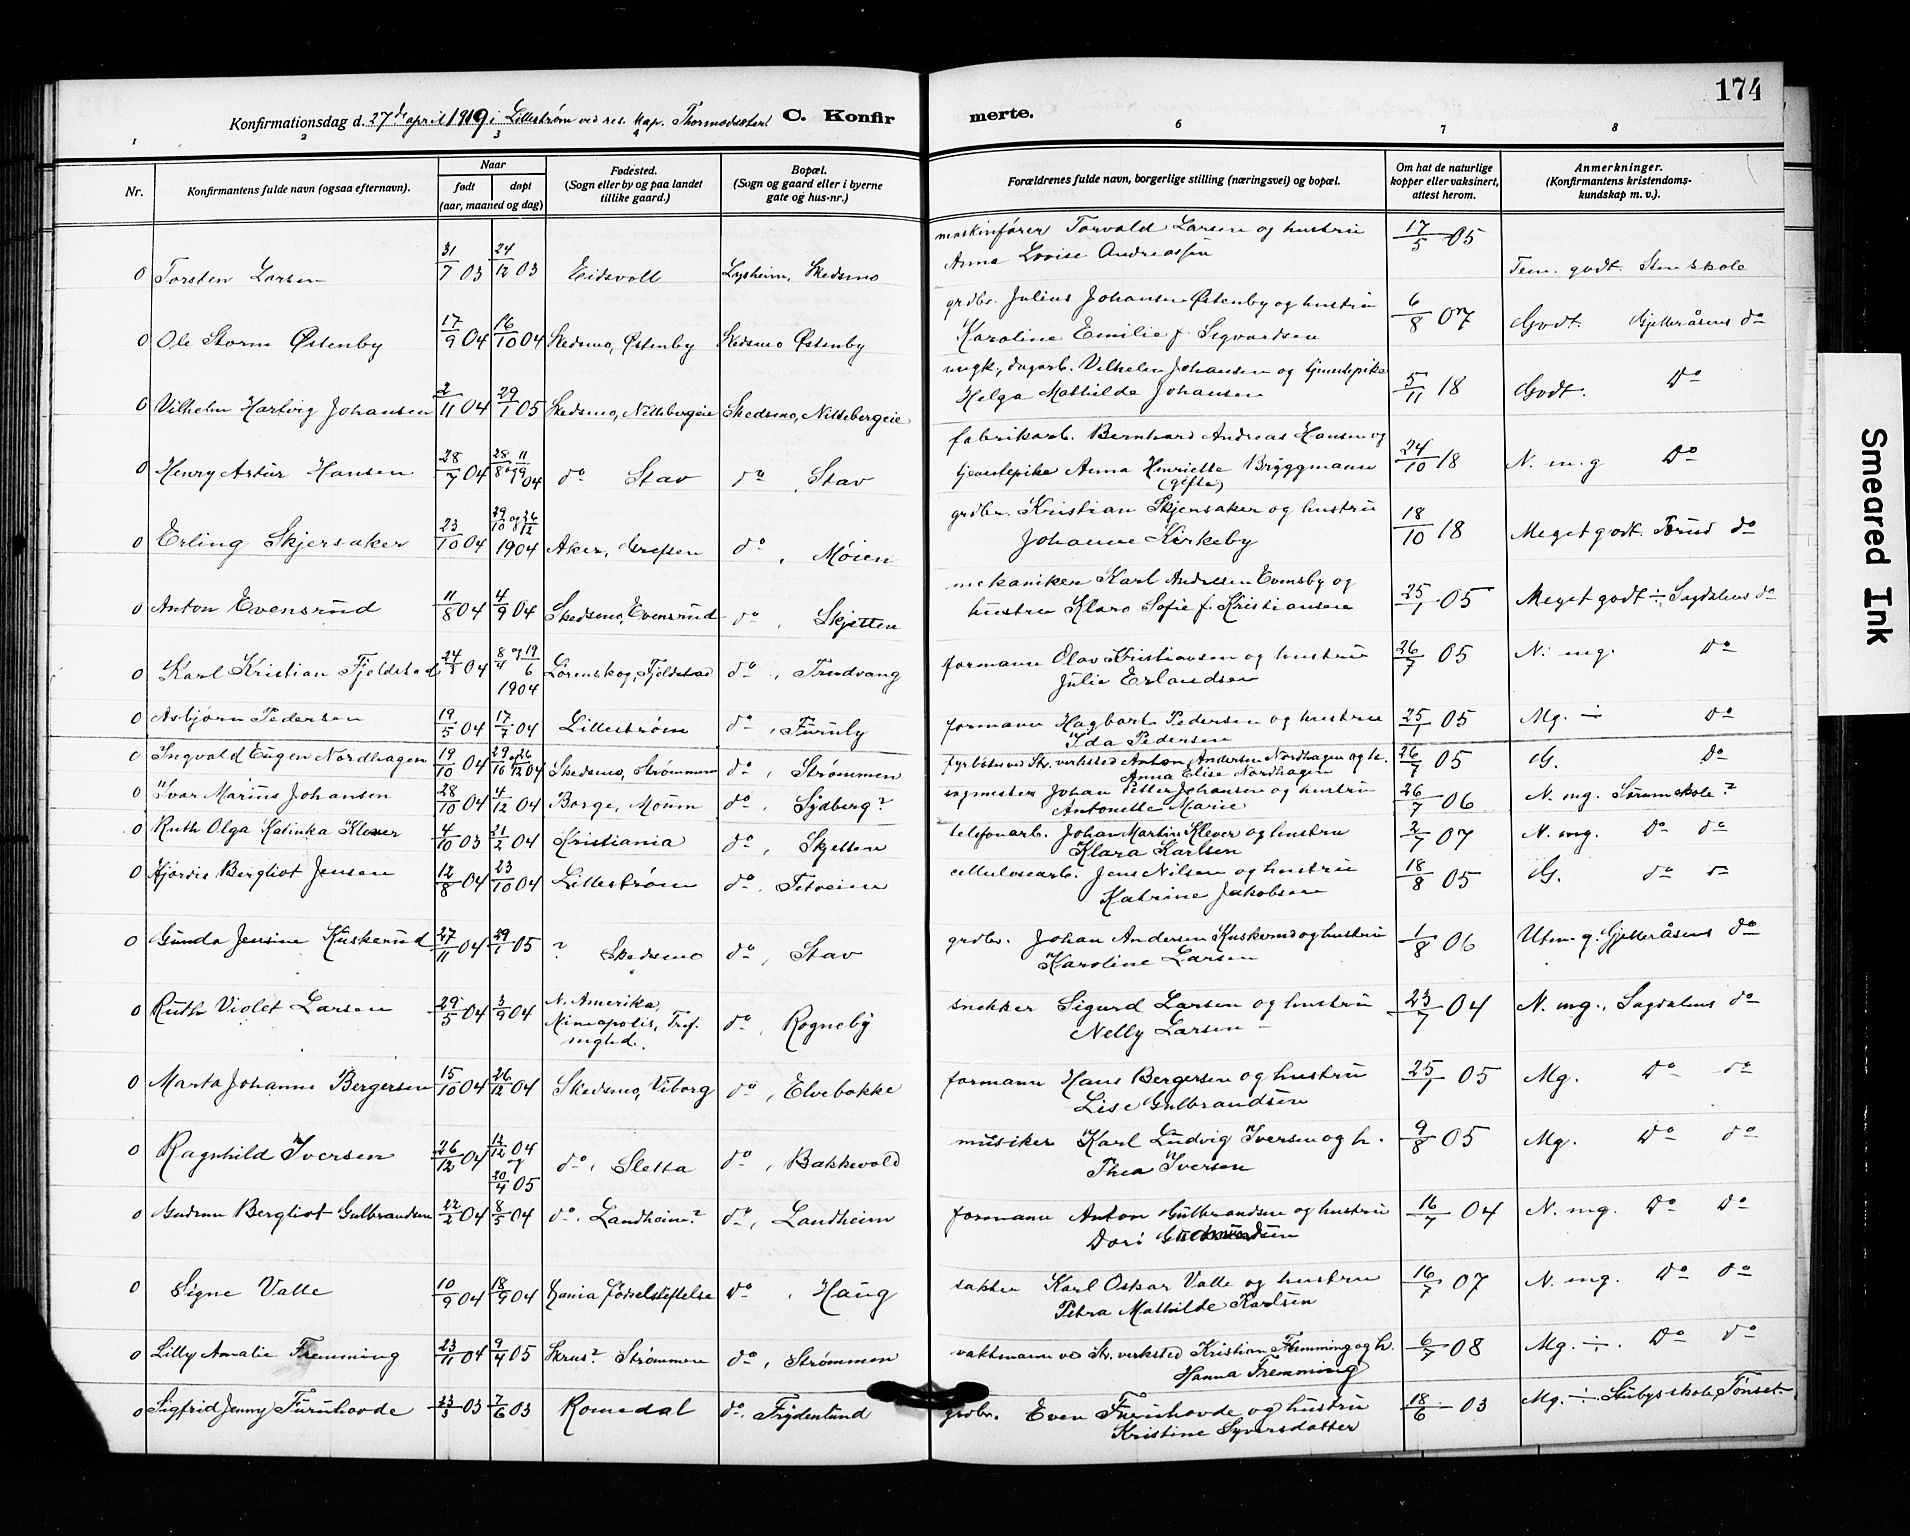 174
Konfirmationsdag d. 27de april 1919 i Lillestrøm ved res. kap. Thormodsæter C. Konfirmerte.
1 2 3 4 6 7 8
Nr. Konfirmantens fulde navn (ogsaa efternavn). Naar født døpt (aar, maaned og dag) Fødested. (Sogn eller by og paa landet tillike gaard.) Bopæl. (Sogn og gaard eller i byerne gate og hus-nr.) Forældrenes fulde navn, borgerlige stilling (næringsvei) og bopæl. Om hat de naturlige kopper eller vaksinert, attest herom. Anmerkninger. (Konfirmantens kristendomskundskap m. v.).
0 Torsten Larsen 31/7 03 24/12 03 Eidsvoll Lysheim, Skedsmo maskinfører Torvald Larsen og hustru
Anna Lovise Andreassen 17/5 05 Tem. godt. Sten skole
0 Ole Storm Østenby 17/9 04 16/10 04 Skedsmo, Østenby Skedsmo Østenby grdbr. Julius Johansen Østenby og hustru
Karoline Emilie f. Sigvardsen 6/8 07 Godt. Gjelleråsens do
0 Vilhelm Hartvig Johansen 2/11 04 29/1 05 Skedsmo, Nittebergeie Skedsmo, Nittebergeie ungk., dagarb. Vilhelm Johansen og tjenestepike
Helga Mathilde Johansen 5/11 18 Godt. Do
0 Henry Artur Hansen 28/7 04 28/8 og 11/9 04 do Stav do, Stav fabrikarb. Bernhard Andreas Hansen og
tjenestepike Anna Henriette Bryggmann
(gifte) 24/10 18 N. m. g Do
0 Erling Skjersaker 23/10 04 29/10 og 26/12 1904 Aker, Grefsen do, Moien grdbr. Kristian Skjersaker og hustru
Johanne Kirkeby 18/10 18 Meget godt. Brud do
0 Anton Evensrud 11/8 04 4/9 04 Skedsmo, Evensrud do, Skjetten mekaniker Karl Andresen Evensby og
hustru Klara Sofie f. Kristiansen 25/1 05 Meget godt ÷ Sagdalens do
0 Karl Kristian Fjeldstad 24/2 04 8/4 og 19/6 1904 Lørenskog, Fjeldstad do, Trudvang formann Olav Kristiansen og hustru
Julie Erlandsen 26/7 05 N. mg. Do
0 Asbjørn Pedersen 19/5 04 17/7 04 Lillestrøm do, Furuly formann Hagbart Pedersen og hustru
Ida Pedersen 25/1 05 Mg. ÷ Do
0 Ingvald Eugen Nordhagen 19/10 04 29/10 og 26/12 04 Skedsmo, Strømmen do, Strømmen fyrbøter ved Str. verksted Anton Andersen Nordhagen og h.
Anna Elise Nordhagen 26/7 05 G. Do
0 Ivar Marius Johansen 28/10 04 4/12 04 Borge, Moum do, Sydberg? sagmester Johan Petter Johansen og hustru
Antonette Marie 26/7 06 N. mg. Sørum skole?
0 Ruth Olga Katinka Klever 4/10 03 21/2 04 Kristiania do, Skjetten telefonarb. Johan Martin Klever og hustru
Klara Karlsen 2/7 07 N. mg. do do
0 Hjørdis Bergliot Jensen 12/8 04 23/10 04 Lillestrøm do, Tetveine cellulosearb. Jens Nilsen og hustru
Katrine Jakobsen 18/8 05 G. do do
0 Gunda Jensine Kuskerud 27/11 04 29/1 05 ? Skedsmo do, Stav grdbr. Johan Andersen Kuskerud og hustru
Karoline Larsen 1/8 06 Utm. g. Gjelleråsens do
0 Ruth Violet Larsen 29/5 04 3/9 04 N. Amerika,
Nineapolis, Tref.
mghd. do, Rogneby snekker Sigurd Larsen og hustru
Nelly Larsen 23/7 04 N. mg., Sagdalens do
0 Marta Johanne Bergersen 15/10 04 26/12 04 Skedsmo, Viborg do, Elvebakke formann Hans Bergersen og hustru
Lise Gulbrandsen 25/1 05 Mg. Do do
0 Ragnhild Iversen 26/12 04 12/12 04 og 20/4 05 do, Sletta do, Bakkevold musiker Karl Ludvig Iversen og h.
Thea Iversen 9/8 05 Mg. Do do
0 Gudrun Bergliot Gulbrandsen 22/2 04 8/5 04 do, Landheim? do, Landheim formann Anton Gulbrandsen og hustru
Dori 16/7 04 N. mg. Do Do
0 Signe Valle 10/9 04 18/9 04 Kania Fødselstiftelse do, Haug sakter Karl Oskar Valle og hustru
Petra Mathilde Karlsen 16/7 07 N. mg. Do do
0 Lilly Amalie Fremming 23/11 04 9/4 05 Skrus? Strømmen do, Strømmen vaktmann ved Str. verksted Kristian Flemming og h.
Hanna Fremming 6/7 08 Mg. ÷. Do do
0 Sigfrid Jenny Furuhovde 23/3 03 7/6 03 Romedal do, Frydenlund grdbr. Even Furuhovde og hustru
Kristine Syversdatter 18/6 03 Mg. ÷ Stubys skole Tønset
Smeared Ink